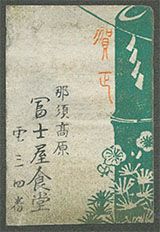 賀正
那須高原
冨士屋食堂
電三四番